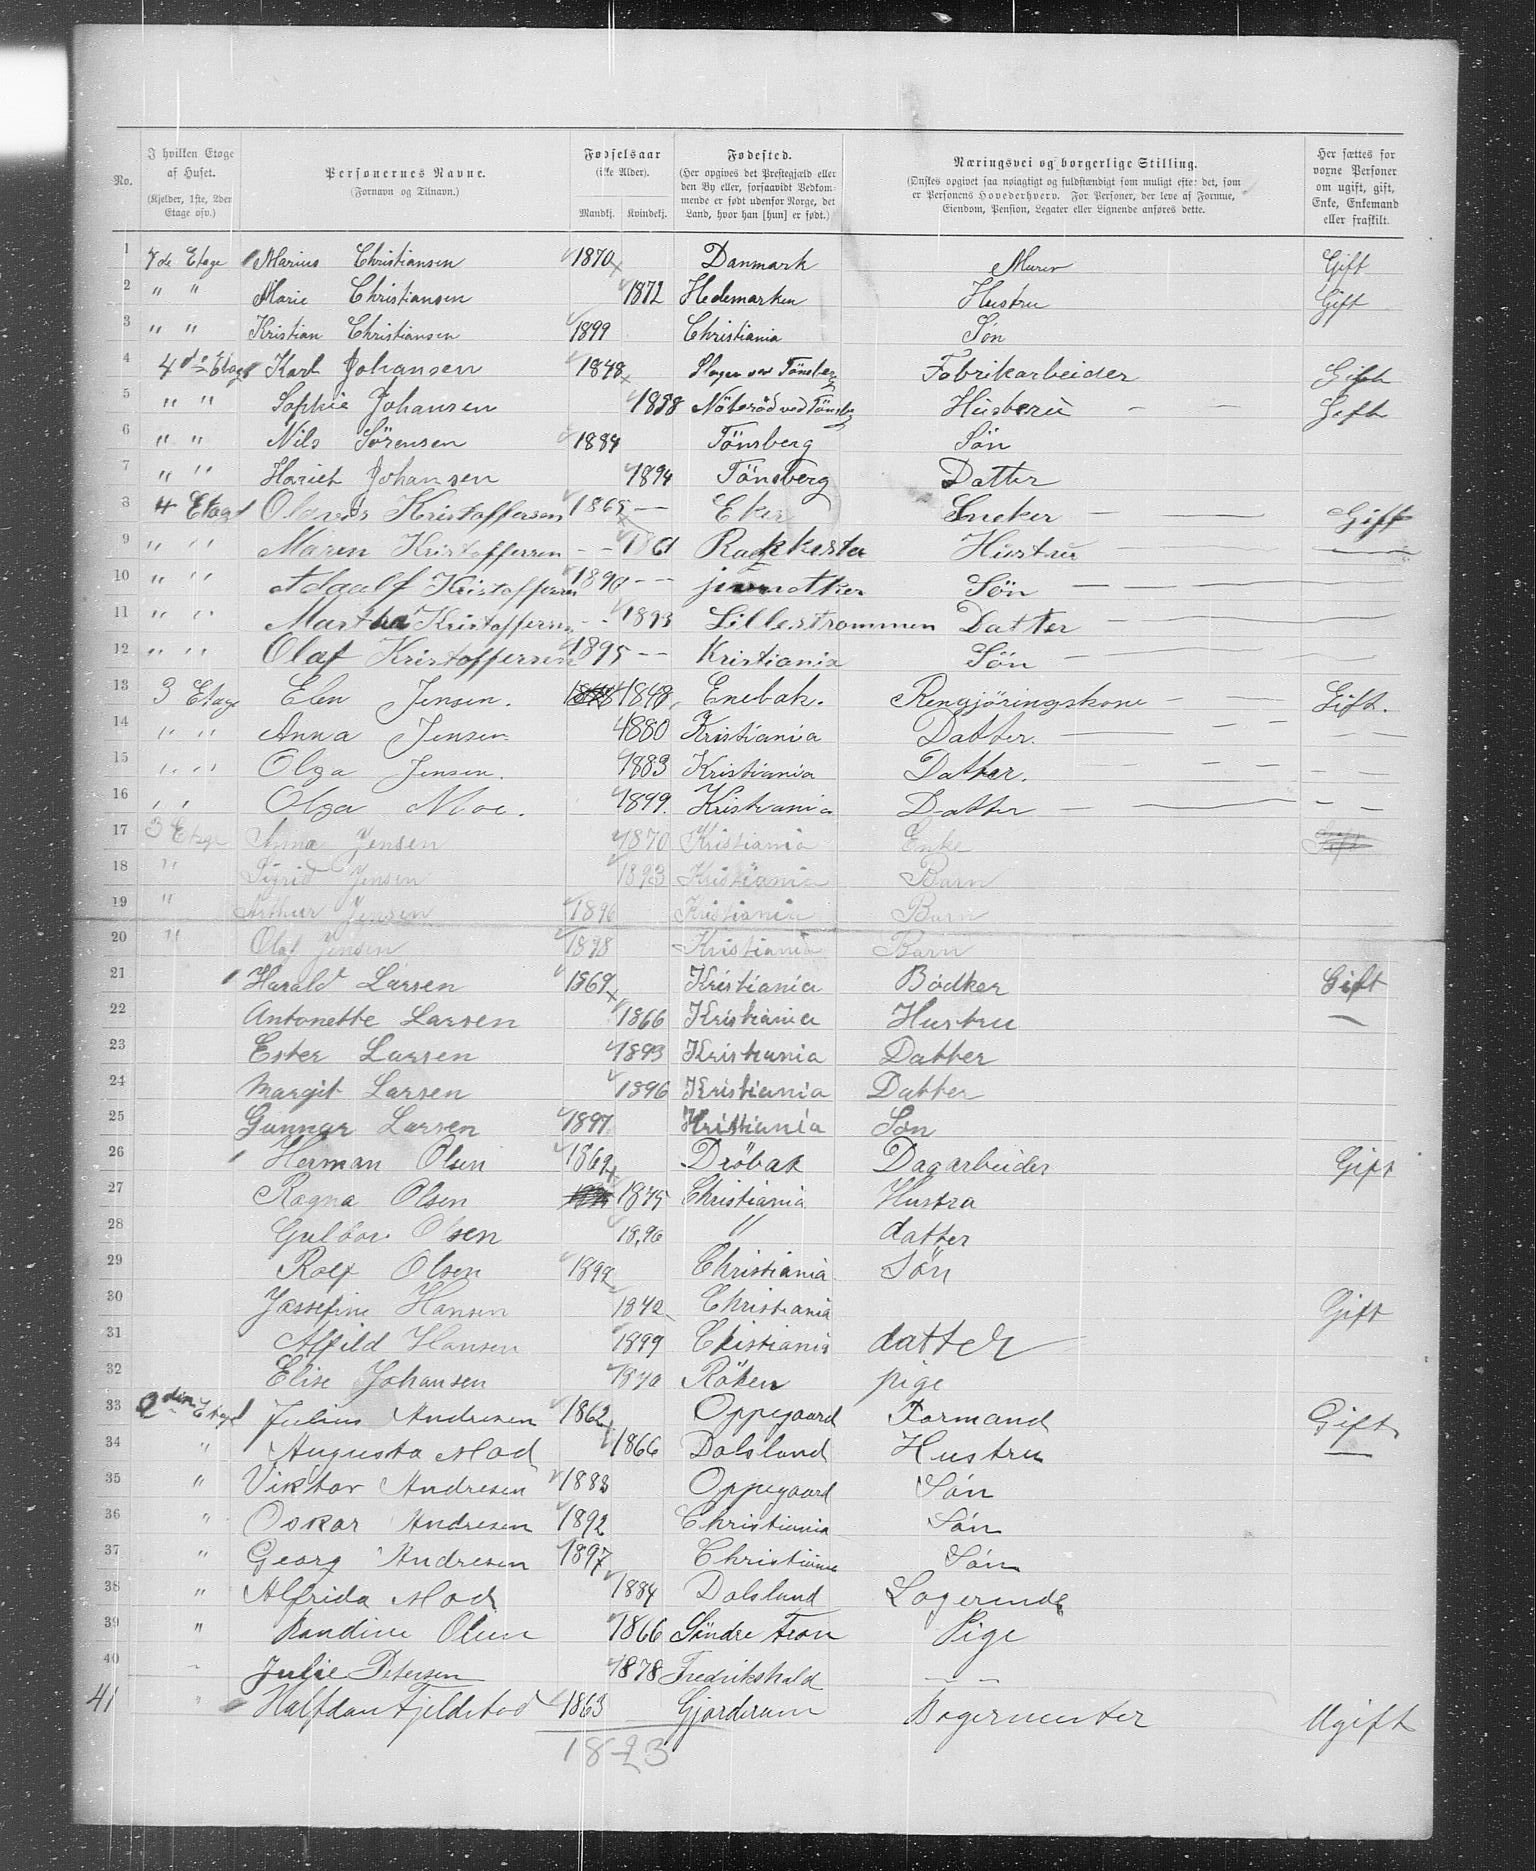 No.
I hvilken Etage af Huset. (Kjelder, 1ste, 2den Etage osv.)
Personernes Navne. (Fornavn og Tilnavn.)
Fødselsaar (ikke Alder). Mandkj. Kvindekj.
Fødested. (Her opgives det Prestegjæld eller den By eller, forsaavidt Vedkommende er født udenfor Norge, det Land, hvor han [hun] er født.)
Næringsvei og borgerlige Stilling. (Ønskes opgivet saa nøiagtigt og fuldstændigt som muligt efter det, som er Personens Hovederhverv. For Personer, der leve af Formue, Eiendom, Pension, Legater eller Lignende anføres dette.)
Her sættes for voxne Personer om ugift, gift, Enke, Enkemand eller fraskilt.
1 4de Etage Marius Christiansen 1870 Danmark Murer Gift
2 " " Marie Christiansen 1872 Hedemarken Hustru Gift
3 " " Kristian Christiansen 1899 Christiania Søn
4 4de Etage Karl Johansen 1848 Slagen ved Tönsberg Fabrikarbeider Gift
5 " " Sophie Johansen 1858 Nöteröd ved Tönsberg Hüsterü — — Gift
6 " " Nils Sörensen 1884 Tönsberg Sön
7 " " Hariet Johansen 1894 Tönsberg Datter
8 4 Etage Olavus Kristoffersen 1865 — — Eker Sneker — — Gift
9 " " Maren Kristoffersen — — 1861 Rakkestad Hustru — —
10 " " Adaalf Kristoffersen 1890 — — Sön — —
11 " " Martha Kristoffersen — — 1893 Lillestrommen Datter — —
12 " " Olaf Kristoffersen 1895 — — Kristiania Sön — —
13 3 Etage Elen Jensen. 1848 Enebak. Rengjöringskone — — Gift.
14 " " Anna Jensen 1880 Kristiania Datter. — — —
15 " " Olga Jensen. 1883 Kristiania Datter. — — —
16 " " Olga Moe. 1899. Kristiania Datter — — —
17 3 Etage Anna Jensen 1870 Kristiania Enke
18 " Sigrid Jensen 1893 Kristiania Barn
19 " Arthur Jensen 1896 Kristiania Barn
20 " Olaf Jensen 1898 Kristiania Barn
21 Harald Larsen 1869 Kristiania Bødker Gift
22 Antonette Larsen 1866 Kristiania Hustru —
23 Ester Larsen 1893 Kristiania Datter
24 Margit Larsen 1896 Kristiania Datter
25 Gunnar Larsen 1897 Kristiania Søn
26 Herman Olsen 1869 Dröbak Dagarbeider Gift
27 Ragna Olsen 1875 Christiania Hustra
28 Gulbor Olsen 1896 " datter
29 Rolf Olsen 1899 Christiania Sön
30 Jossefine Hansen 1842 Christiania Gift
31 Alfild Hansen 1899 Christiania datter
32 Elise Johansen 1840 Röken pige
33 2den Etage Julius Andresen 1862 Oppegaard Formand Gift
34 " Augusta Mod 1866 Dalsland Hustru —
35 " Viktor Andresen 1883 Oppegaard Sön
36 " Oskar Andresen 1892 Christiania Sön
37 " Georg Andresen 1897 Christiania Sön
38 " Alfrida Mod 1884 Dalsland Logerende
39 " Randine Olsen 1866 Söndre Fron Pige
40 " Julie Petersen 1878 Fredrikshald — —
41 " Halfdan Fjeldstad 1863 Gjerdrum Bagermester Ugift
18-23